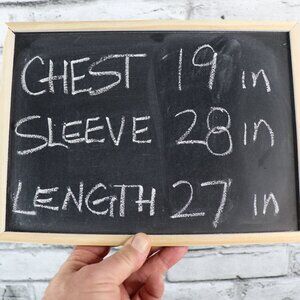 CHEST 19 in
SLEEVE 28 in
LENGTH 27 in